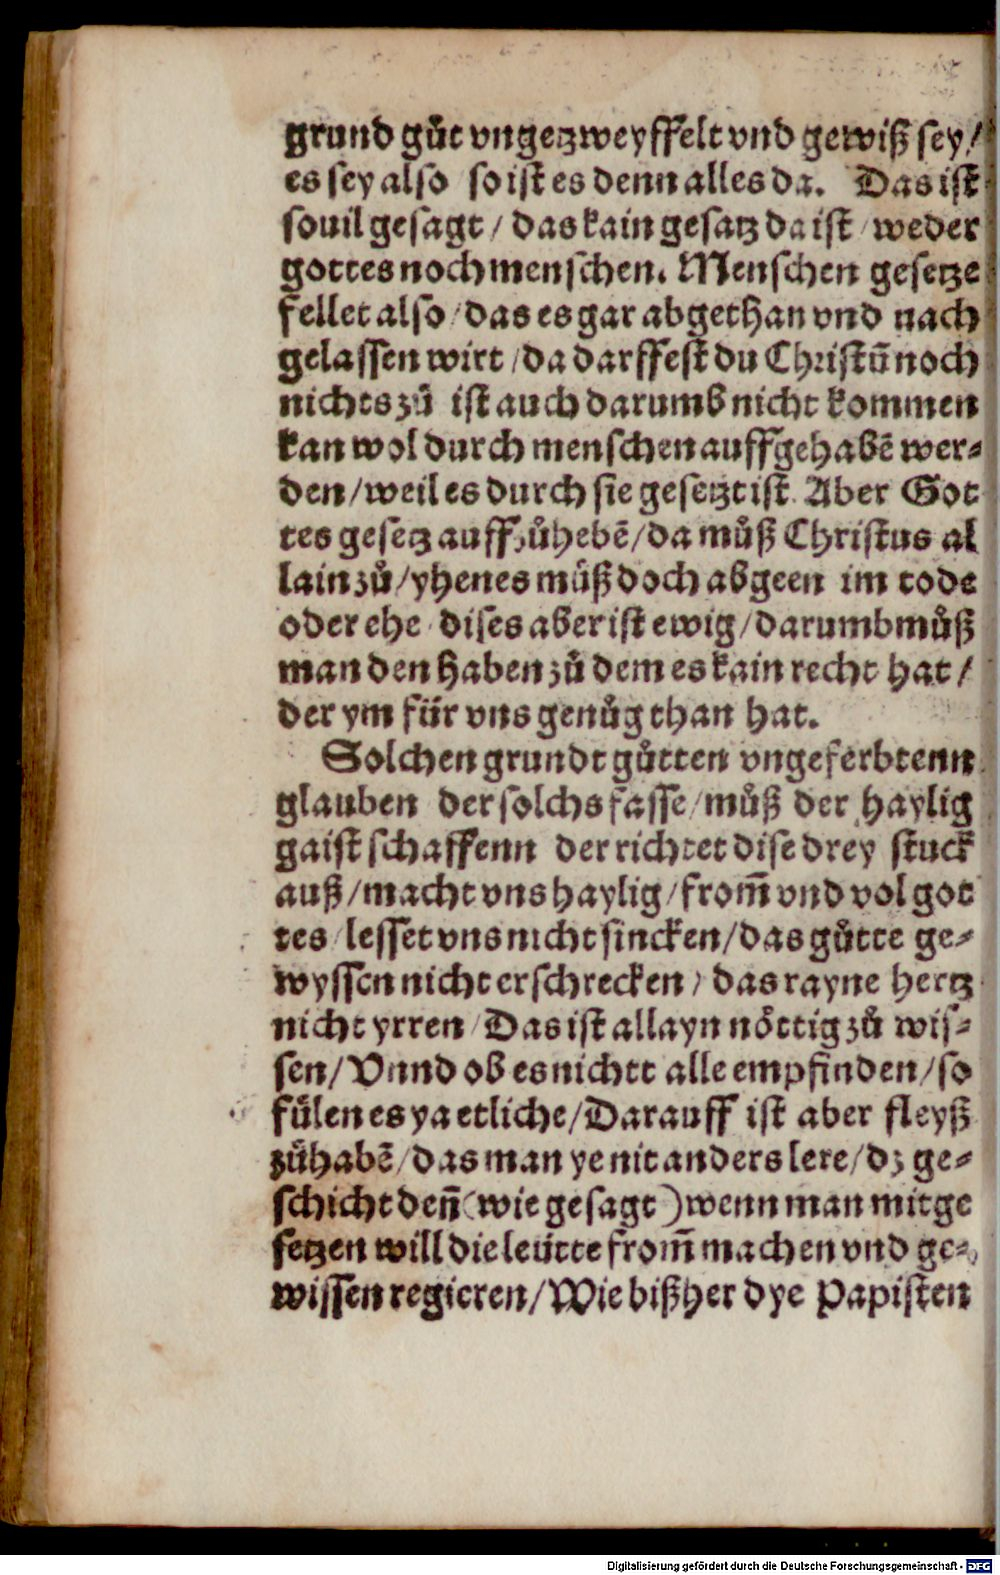 grund gůt vngetzweyffelt vnd gewiß sey /
es sey also so ist es denn alles da. Das ist
souil gesagt / das kain gesatz da ist / weder
gottes noch menschen. Menschen gesetze
fellet also / das es gar abgethan vnd nach
gelassen wirt / da darffest du Christū noch
nichts zů ist auch darumb nicht kommen
kan wol durch menschen auffgehabē wer⸗
den / weil es durch sie gesetzt ist. Aber Got
tes gesetz auffzůhebē / da můß Christus al
lain zů / yhenes můß doch abgeen im tode
oder ehe / dises aber ist ewig / darumb můß
man den haben zů dem es kain recht hat /
der ym für vns genůg than hat.
Solchen grundt gůtten vngeferbtenn
glauben der solchs fasse / můß der haylig
gaist schaffenn der richtet dise drey stuck
auß / macht vns haylig / from̄ vnd vol got
tes / lesset vns nicht sincken / das gůtte ge⸗
wyssen nicht erschrecken / das rayne hertz
nicht yrren / Das ist allayn nöttig zů wis⸗
sen / Vnnd ob es nichtt alle empfinden / so
fülen es ya etliche / Darauff ist aber fleyß
zůhabē / das man ye nit anders lere / dz ge⸗
schicht den̄ (wie gesagt) wenn man mit ge
setzen will die leütte from̄ machen vnd ge⸗
wissen regieren / Wie bißher dye Papisten
Digitalisierung gefördert durch die Deutsche Forschungsgemeinschaft - DFG